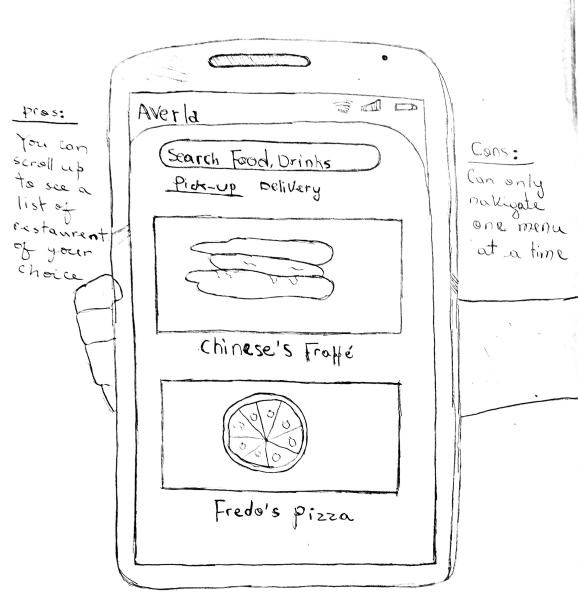 pros:
You can
scroll up
to see a
list of
restaurent
of your
choice
Averla
Search Food, Drinks
Pick-up Delivery
Chinese's Frappé
Fredo's pizza
Cons:
Can only
navigate
one menu
at a time